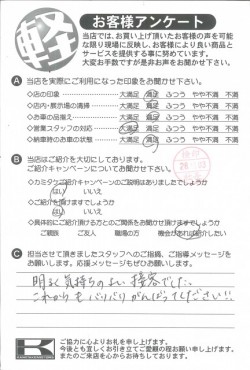 軽
お客様アンケート
当店では、お買い上げ頂いたお客様の声を可能
な限り現場に反映し、お客様により良い商品と
サービスを提供する事に努めています。
大変お手数ですが是非お声をお聞かせ下さい。
A 当店を実際にご利用になった印象をお聞かせ下さい。
◇店の印象 大満足 満足 ふつう やや不満 不満
◇店内・展示場の清掃 大満足 満足 ふつう やや不満 不満
◇お車の品揃え 大満足 満足 ふつう やや不満 不満
◇営業スタッフの対応 大満足 満足 ふつう やや不満 不満
◇納車時のお車の状態 大満足 満足 ふつう やや不満 不満
B 当店はご紹介を大切にしております。
ご紹介キャンペーンについてお聞かせ下さい。
◇カミタケご紹介キャンペーンのご説明はありましたでしょうか
はい いいえ
◇ご紹介を頂けますでしょうか
はい いいえ
◇具体的にご紹介頂ける方とのご関係をお聞かせ頂けますでしょうか
ご親戚 ご友人 職場の方 機会があれば紹介したい
C 担当させて頂きましたスタッフへのご指摘、ご指導メッセージを
お願いします。応援メッセージもぜひお願いします。
明るく気持ちのよい接客でした。
これからもバリバリがんばって下さい!!
ご協力に心よりお礼を申し上げます。
今後とも宜しくお引き立てご愛顧の程お願い申し上げます。
またのご来店を心からお待ちしております。